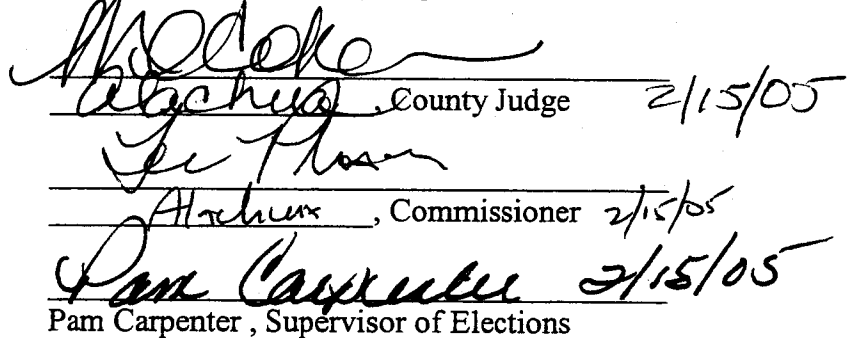 Alachua, County Judge 2/15/05
Lee
Alachua, Commissioner 2/15/05
Pam Carpenter 2/15/05
Pam Carpenter , Supervisor of Elections